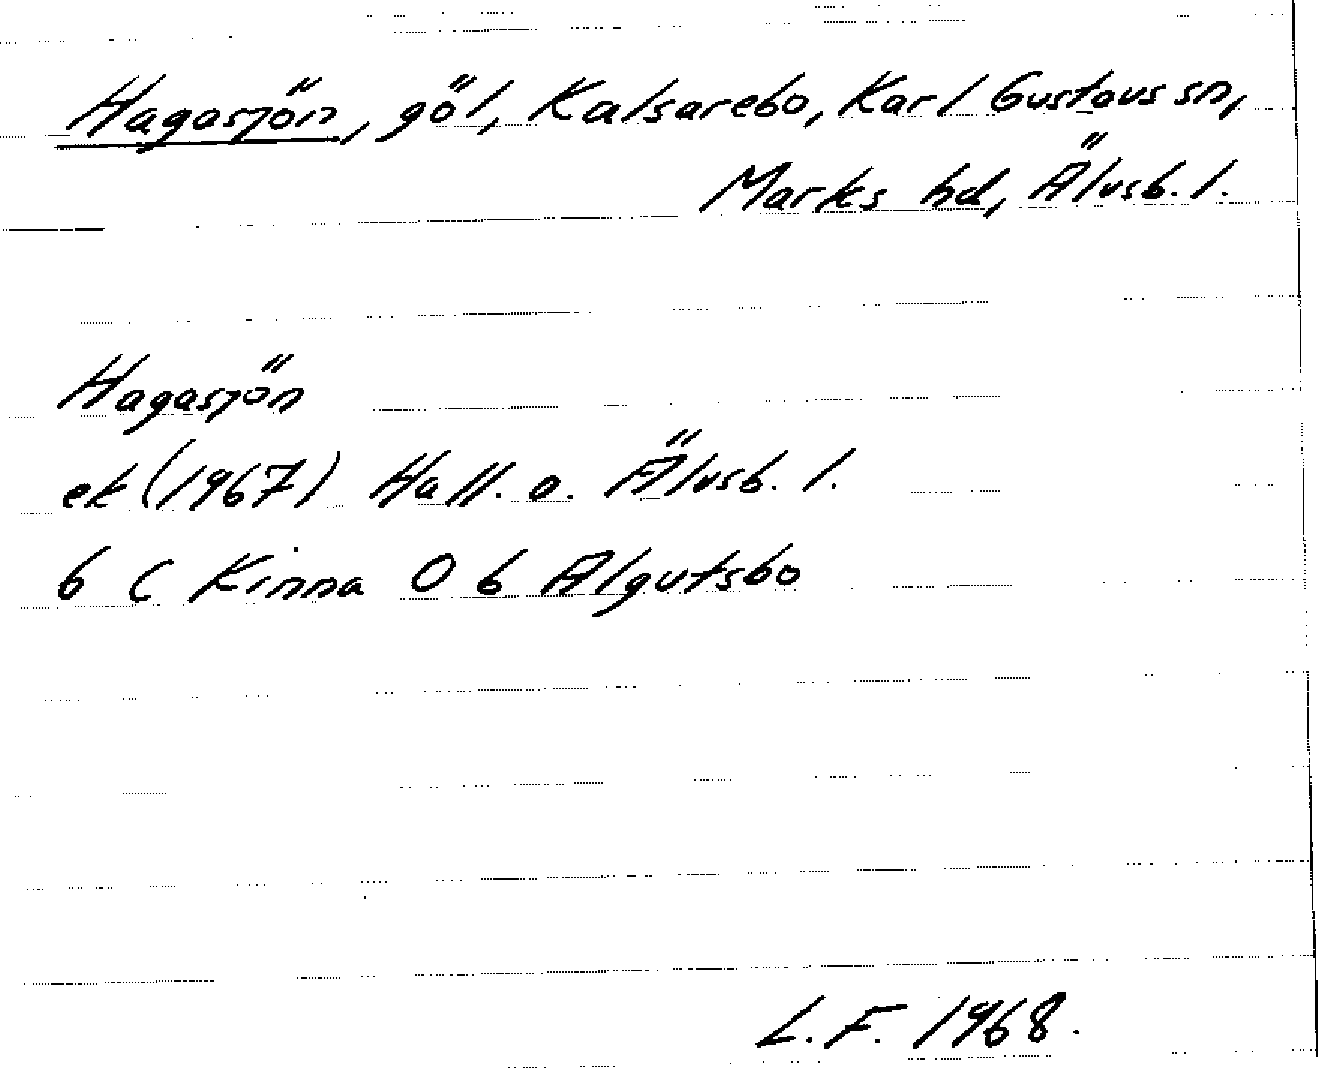 Hagasjön, göl, Kalsarebo, Karl Gustavs sn,
Marks hd, Älvsb. l.
Hagasjön
ek (1967) Hall. o. Älvsb. l.
6 C Kinna 0 b Älgutsbo
L.F. 1968.